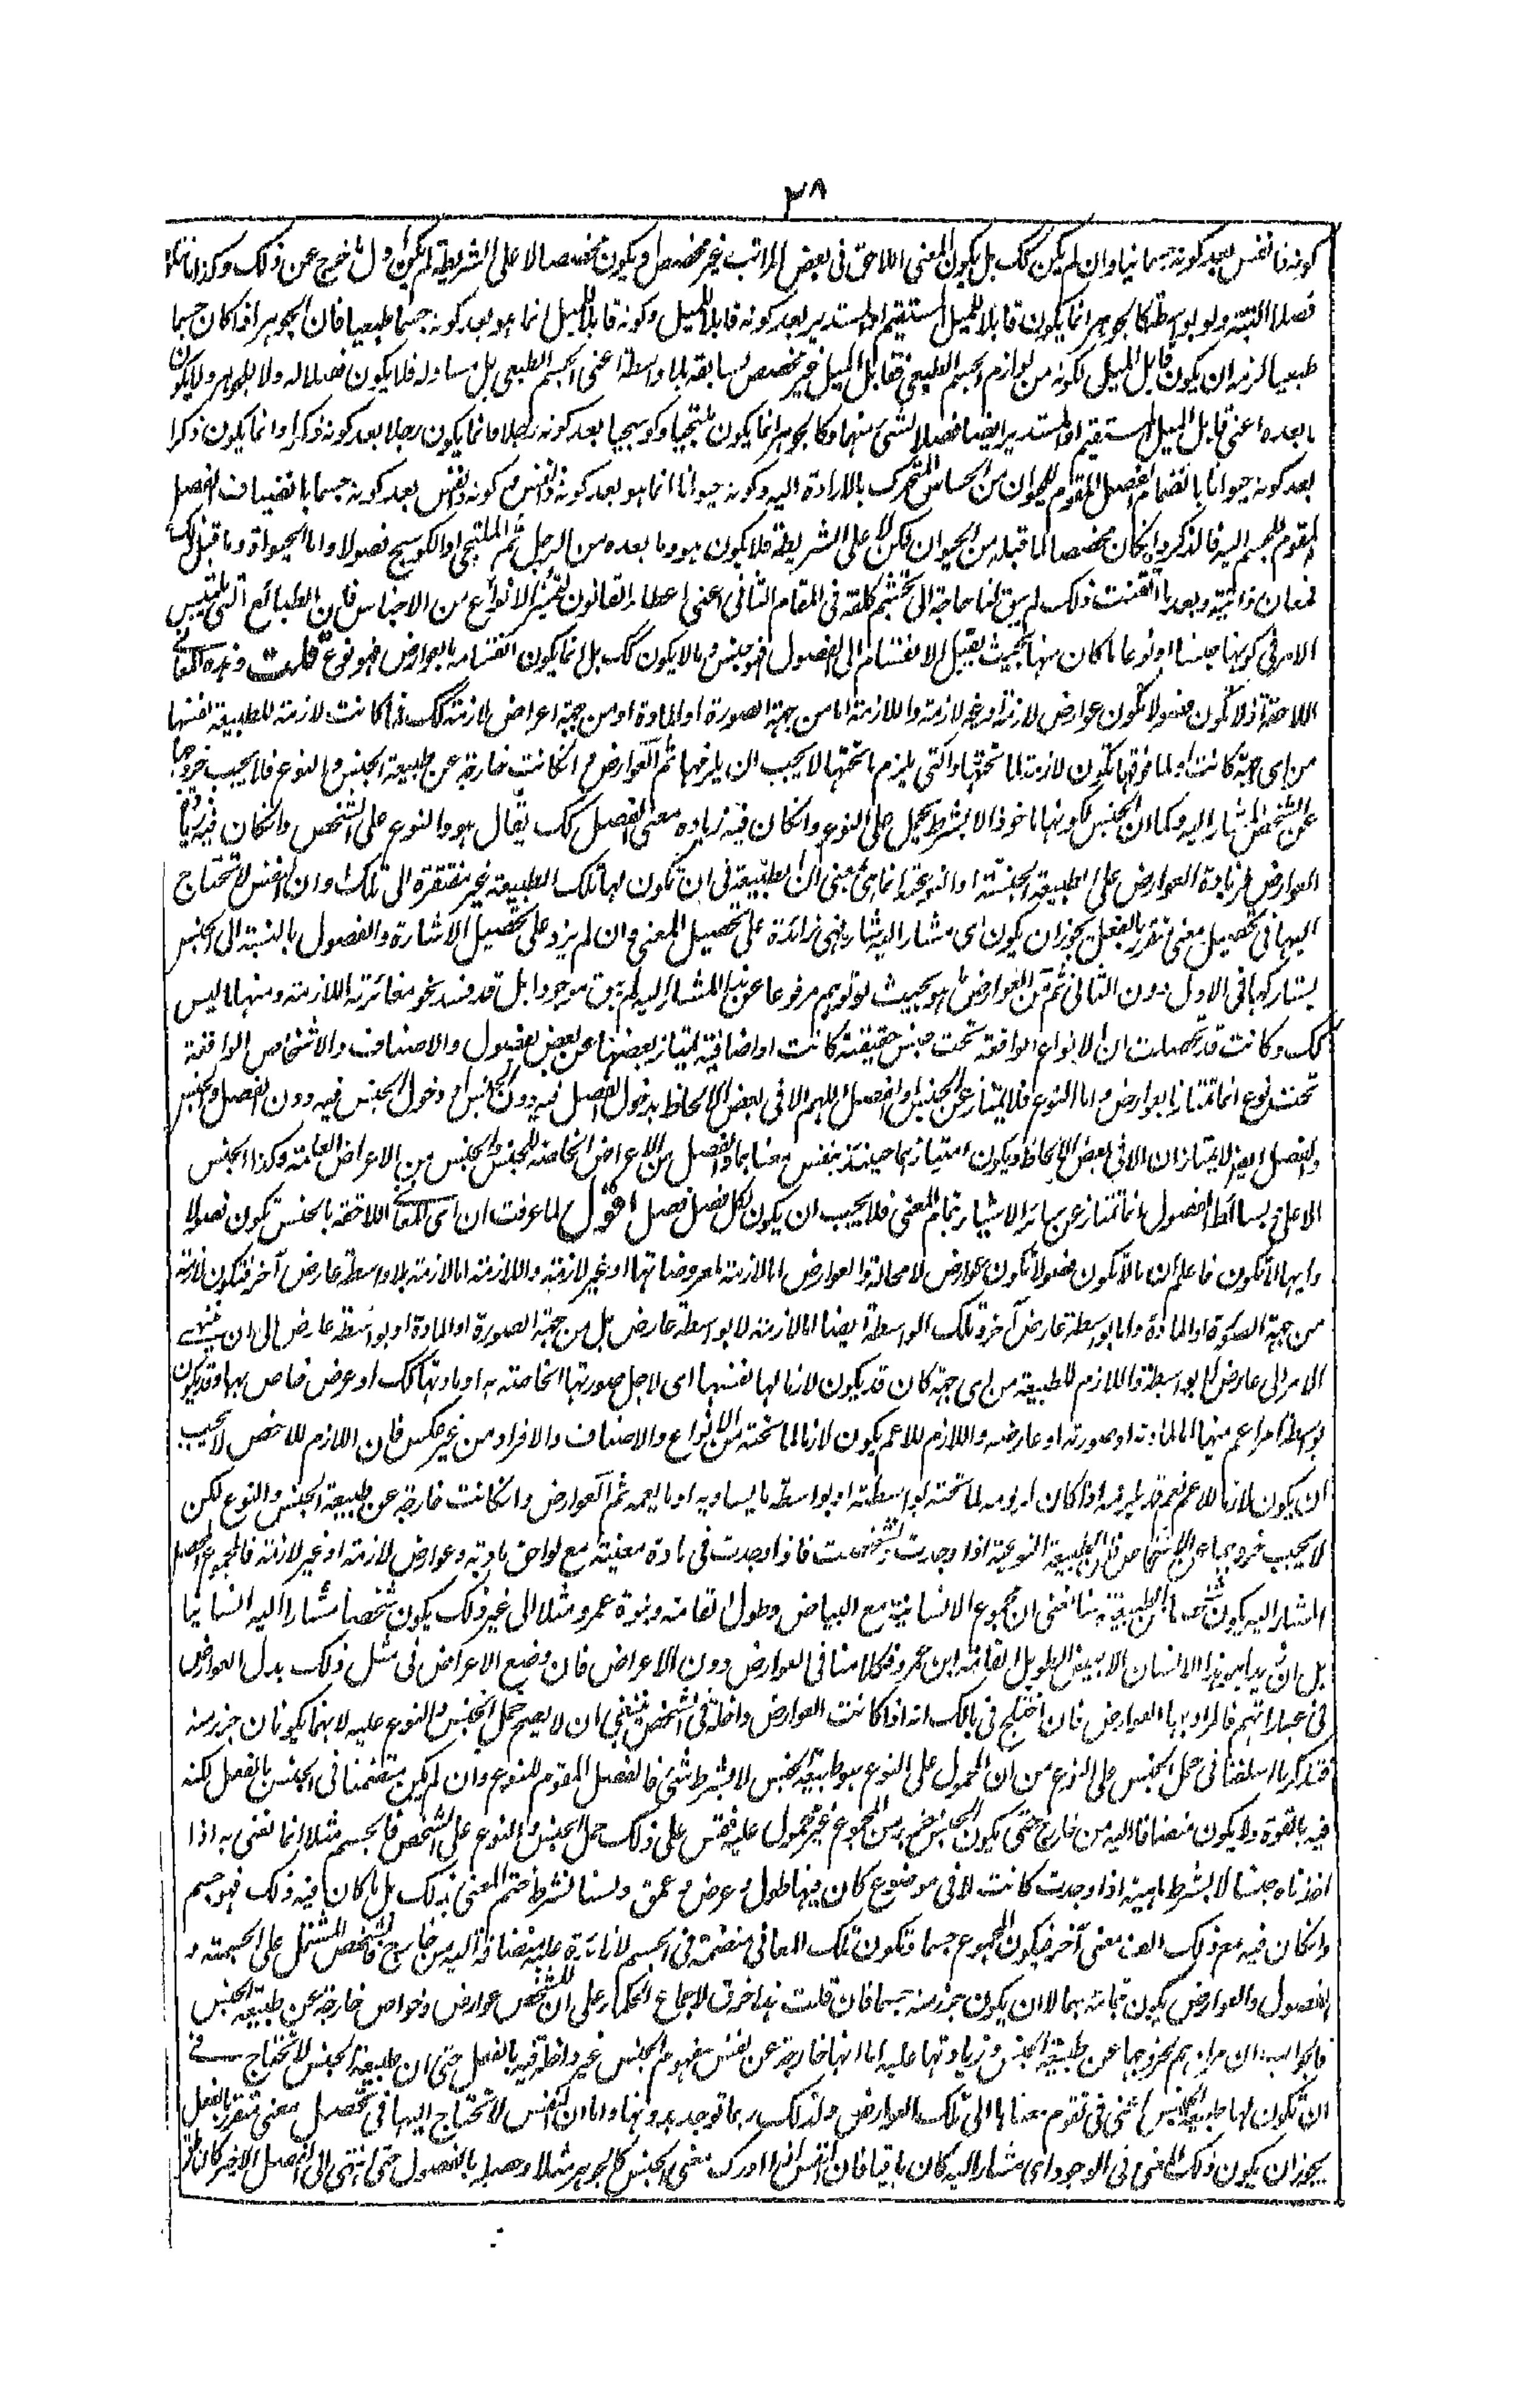 ٣٨
كونه ذا نفس بعد كونه جسمانيا وان لم يكن كك بل يكون المعنى اللاحق فى بعض المراتب غير مخصص او يكون مخصصا لا على الشريطة لم يكن ولٰ خرج عن ذلك وكذا ما
فصلا البتة ولو بواسطة كالجوهر انما يكون قابلا للميل المستقيم او المستدير بعد كونه قابلا للميل وكونه قابلا للميل انما هو بعد كونه جسما طبعيا فان الجوهر اذا كان جسما
طبعيا لزمه ان يكون قابل الميل لكونه من لوازم الجسم الطبيعى فقابل الميل غير مخصص لسابقه بلا واسطة اعنى الجسم الطبيعى بل مساو له فلا يكون فصلا له ولا للجوهر ولا يكون
ما بعده اعنى قابل الميل المستقيم او المستدير ايضا فصلا لشئ منهما وكالجوهر انما يكون ملتحيا وكوسجيا بعد كونه رجلا فانما يكون رجلا بعد كونه ذكرا وانما يكون ذكرا
بعد كونه حيوانا بانضمام الفصل المقوم للحيوان من الحساس المتحرك بالارادة اليه وكونه حيوانا انما هو بعد كونه ذا نفس وكونه ذا نفس بعد كونه جسما بانضياف الفصل
المقوم للجسم اليه فالذكر وان كان مخصصا لما قبله من الحيوان لكن لا على الشريطة فلا يكون هو وما بعده من الرجل ثم الملتحى او الكوسج فصولا واما الحيوان وما قبل ذلك
فمعان ذاتية وبعد ما اتقنت ذلك لم يبق لنا حاجة الى تجشم كلفة فى المقام الثانى اعنى اعطاء القانون لتميز الانواع من الاجناس فان الطبائع التى يلتبس
الامر فى كونها جنسا او نوعا ما كان منها بحيث يقبل الانقسام الى الفصول فهو جنس وما لا يكون كك بل انما يكون انقسامه بالعوارض فهو نوع قلت وهذه المعانى
اللاحقة اذ لا تكون فصولا تكون عوارض لازمة او غير لازمة واللازمة اما من جهة الصورة او المادة او من جهة اعراض لازمة كك فما كانت لازمة للطبيعة نفسها
من اى جهة كانت او لما فوقها تكون لازمة لما تحتها والتى يلزم ما تحتها لا يجب ان يلزمها ثم العوارض وان كانت خارجة عن طبيعة الجنس والنوع فلا يجب خروجها
عن الشخص المشار اليه وكما ان الجنس لكونها ماخوذا لا بشرط يحمل على النوع وان كان فيه زيادة معنى الفصل كك يقال هو والنوع على الشخص وان كان فيه زيادة
العوارض فزيادة العوارض على الطبيعة الجنسية او النوعية انما هى بمعنى ان الطبيعة فى ان تكون لها تلك الطبيعة غير مفتقرة الى تلك وان النفس لا تحتاج
اليها فى تحصيل معنى متقرر بالفعل يجوز ان يكون اى مشار اليه شار فهى زائدة على تحصيل المعنى وان لم يزد على تحصيل الاشارة والفصول بالنسبة الى الجنس
يشاركها فى الاول دون الثانى ثم من العوارض ما هو بحيث لو توهم مرفوعا عن هذا المشار اليه لم يبق موجودا بل قد فسد نحو مغائرته اللازمة ومنها ما ليس
كك وكانت قد تحصلت ان الانواع الواقعة تحت جنس حقيقية كانت او اضافية يمتاز بعضها عن بعض بفصول والاصناف والاشخاص الواقعة
تحت نوع انما تمتاز بالعوارض واما النوع فلا يمتاز عن الجنس والفصل اللهم الا فى بعض الالحاظ بدخول الفصل فيه دون الجنس او دخول الجنس فيه دون الفصل والجنس
والفصل ايضا لا يمتازان الا فى بعض الالحاظ ويكون امتيازهما حينئذ بنفس معناهما والفصل من الاعراض الخاصة للجنس والجنس من الاعراض العامة وكذا الجنس
الاعلى وبسائط الفصول انما تمتاز عن سائر الاشياء بتمام المعنى فلا يجب ان يكون لكل فصل فصل اقول لما عرفت ان اى المعانى اللاحقة بالجنس تكون فصولا
وايها لا تكون فاعلم ان ما لا تكون فصولا تكون عوارض لا محالة والعوارض اما لازمة لمعروضاتها او غير لازمة واللازمة اما لازمة بلا واسطة عارض آخر فتكون لازمة
من جهة الصورة او المادة واما بواسطة عارض آخر وتلك الواسطة ايضا اما لازمة لا بواسطة عارض بل من جهة الصورة او المادة او بواسطة عارض الى ان ينتهى
الامر الى عارض لا بواسطة واللازم للطبيعة من اى جهة كان قد يكون لازما لها نفسها اى لاجل صورتها الخاصة به او مادتها كك او عرض خاص بها وقد يكون
بواسطة امر اعم منها اما لمادته او صورته او عارضه واللازم للاعم يكون لازما لما تحته من الانواع والاصناف والافراد من غير عكس فان اللازم للاخص لا يجب
ان يكون لازما للاعم نعم قد يلزمه اذا كان لزومه لما تحته بواسطته او بواسطة ما يساويه او ما يعمه ثم العوارض وان كانت خارجة عن طبيعة الجنس والنوع لكن
لا يجب خروجها عن الاشخاص فان الطبيعة النوعية اذا وجدت تشخصت فاذا وجدت فى مادة معينة مع لواحق مادته وعوارض لازمة او غير لازمة فالمجموع المحصل
المشار اليه يكون شخصا من الطبيعة هنا نعنى ان مجموع الانسانية مع البياض وطول القامة وبنوة عمرو مثلا الى غير ذلك يكون شخصا مشارا اليه انسانيا
بل ان زيدا هو هذا الانسان الابيض الطويل القامة ابن عمرو فكلامنا فى العوارض دون الاعراض فان وضع الاعراض فى مثل ذلك بدل العوارض
فى عباراتهم فالمراد بها العوارض فان اختلج فى بالك انه اذا كانت العوارض داخلة فى الشخص ينبغى ان لا يصح حمل الجنس والنوع عليه لانهما يكونان جزء منه
فتذكر ما اسلفنا فى حمل الجنس على النوع من ان المحمول على النوع هو طبيعة الجنس لا بشرط شئ فالفصل المقوم للنوع وان لم يكن متضمنا فى الجنس بالفعل لكنه
فيه بالقوة ولا يكون منضافا اليه من خارج حتى يكون الجنس جزء من المجموع غير محمول عليه فقس على ذلك حمل الجنس والنوع على الشخص فالجسم مثلا انما نعنى به اذا
اخذناه جنسا لا بشرط ماهية اذا وجدت كانت لا فى موضوع كان فيها طول وعرض وعمق ولسنا نشرط ختم المعنى بذلك بل ما كان فيه ذلك فهو جسم
وان كان فيه مع ذلك الف معنى آخر فيكون المجموع جسما وتكون تلك المعانى متضمنة فى الجسم لا زائدة عليه منضافة اليه من خارج فالشخص المشتمل على الجسمية و
الفصول والعوارض يكون بتمامه جسما لا ان يكون جزء منه جسما فان قلت هذا خرق لاجماع الحكماء على ان للشخص عوارض وخواص خارجة عن طبيعة الجنس
فالجواب ان مرادهم بخروجها عن طبيعة الجنس وزيادتها عليه اما انها خارجة عن نفس مفهوم الجنس غير داخلة فيه بالفعل حتى ان طبيعة الجنس لا تحتاج فى
ان تكون لها طبيعة الجنس اعنى فى تقوم معناها الى تلك العوارض ولذلك ربما توجد بدونها واما ان النفس لا تحتاج اليها فى تحصيل معنى متقرر بالفعل
يجوز ان يكون ذلك المعنى فى الوجود اى مشار اليه كان باقيا فان النفس اذا ادرك معنى الجنس كالجوهر مثلا وحصله بالفصول حتى انتهى الى الفصل الاخير كالناطق